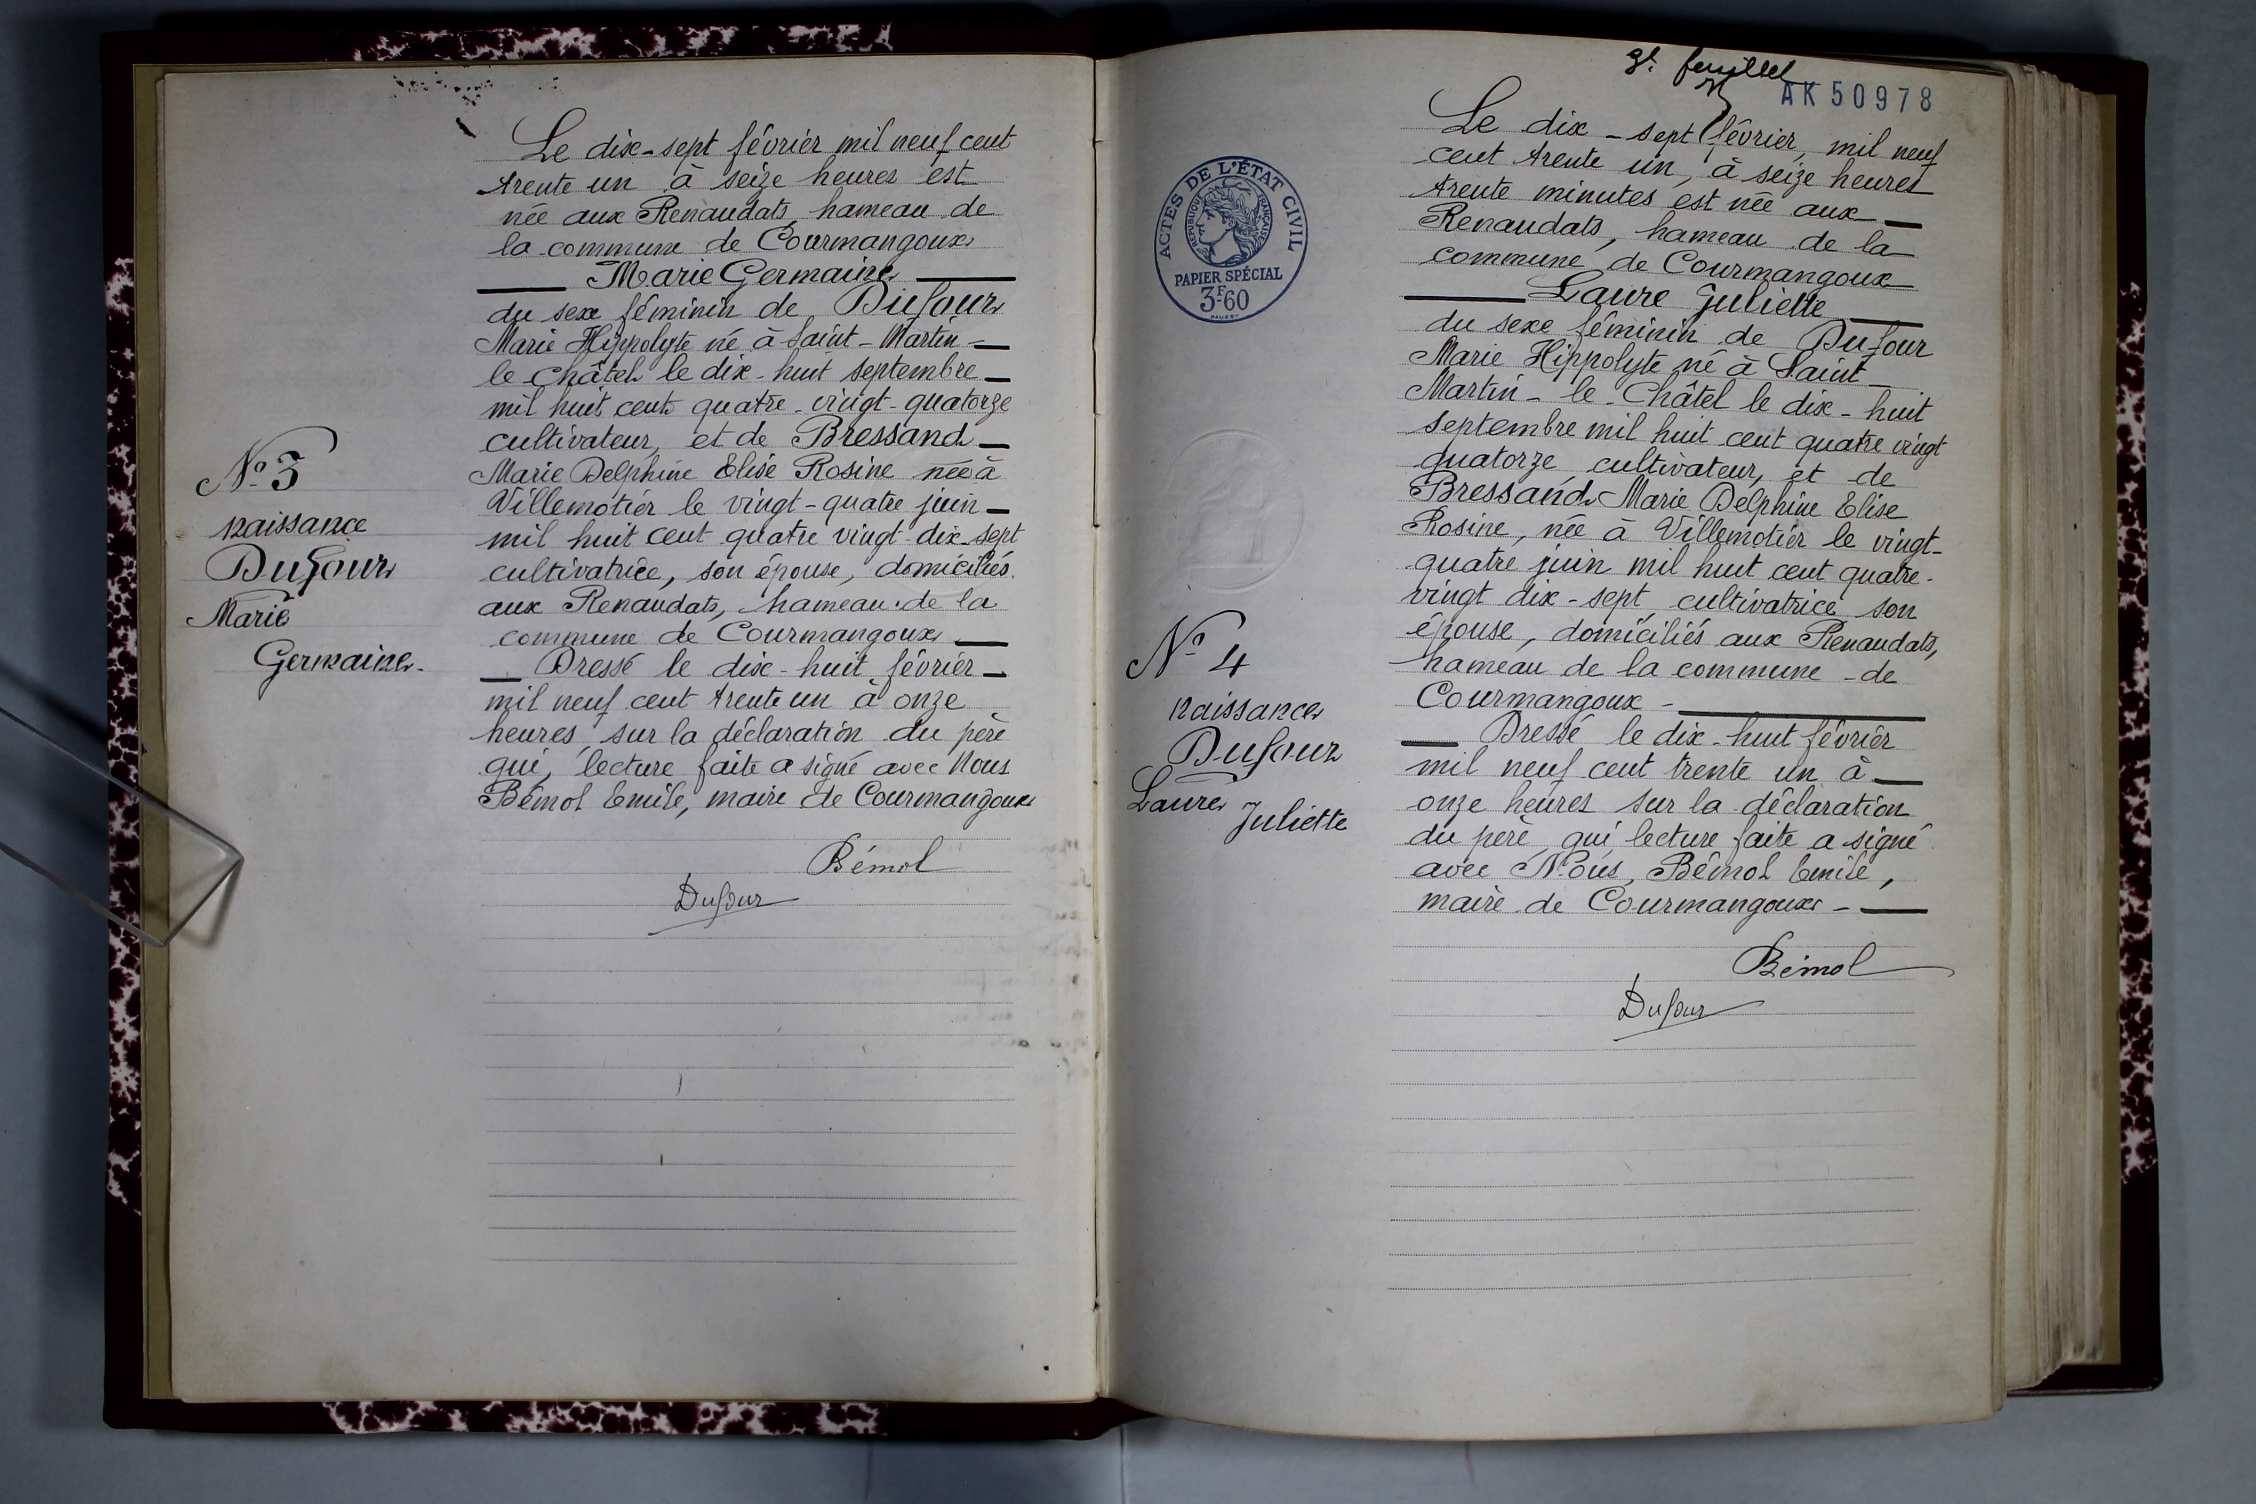 Le dix-sept février mil neuf cent
trente un à seize heures est
née aux Renaudats, hameau de
la commune de Courmangoux
Marie Germaine
du sexe féminin de Dufour
Marie Hippolyte né à Saint-Martin-
le Châtel le dix-huit septembre
mil huit cent quatre-vingt-quatorze
cultivateur, et de Bressand
Marie Delphine Elise Rosine née à
Villemotier le vingt-quatre juin
mil huit cent quatre vingt-dix-sept
cultivatrice, son épouse, domiciliés
aux Renaudats, hameau de la
commune de Courmangoux
Dressé le dix-huit février
mil neuf cent trente un à onze
heures sur la déclaration du père
qui, lecture faite a signé avec Nous
Bémol Emile, maire de Courmangoux
Bémol
Dufour
N° 3
naissance
Dufour
Marie
Germaine
feuillet
AK 50978
ACTES DE L'ÉTAT CIVIL
RÉPUBLIQUE FRANÇAISE
PAPIER SPÉCIAL
3F60
Le dix-sept février, mil neuf
cent trente un, à seize heures
trente minutes est née aux
Renaudats, hameau de la
commune de Courmangoux
Laure Juliette
du sexe féminin de Dufour
Marie Hippolyte né à Saint-
Martin-le-Châtel le dix-huit
septembre mil huit cent quatre vingt
quatorze cultivateur, et de
Bressand Marie Delphine Elise
Rosine, née à Villemotier le vingt-
quatre juin mil huit cent quatre-
vingt dix-sept cultivatrice son
épouse, domiciliés aux Renaudats,
hameau de la commune de
Courmangoux
Dressé le dix-huit février
mil neuf cent trente un à
onze heures sur la déclaration
du père qui, lecture faite a signé
avec Nous, Bémol Emile,
maire de Courmangoux
Bémol
Dufour
N° 4
naissance
Dufour
Laure
Juliette